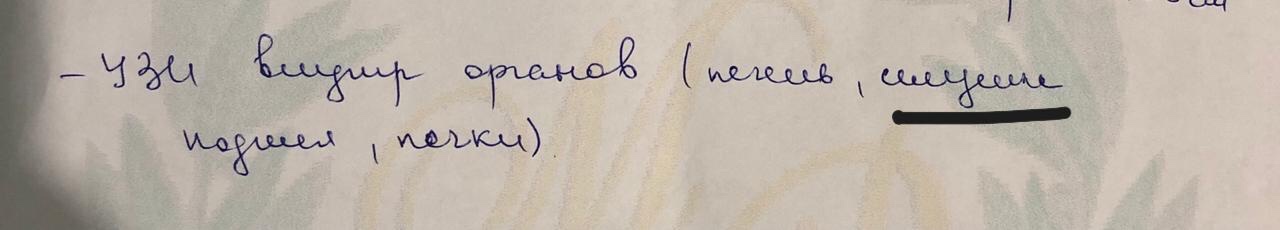 - УЗИ внутр органов (печень,
поджел, почки)